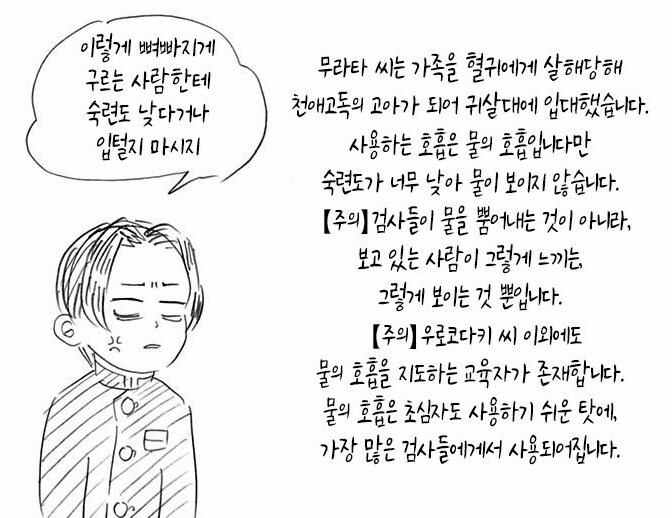 이렇게 뼈빠지게
구르는 사람한테
숙련도 낮다거나
입털지 마시지
무라타 씨는 가족을 혈귀에게 살해당해
천애고독의 고아가 되어 귀살대에 입대했습니다.
사용하는 호흡은 물의 호흡입니다만
숙련도가 너무 낮아 물이 보이지 않습니다.
【주의】검사들이 물을 뿜어내는 것이 아니라,
보고 있는 사람이 그렇게 느끼는,
그렇게 보이는 것 뿐입니다.
【주의】우로코다키 씨 이외에도
물의 호흡을 지도하는 교육자가 존재합니다.
물의 호흡은 초심자도 사용하기 쉬운 탓에,
가장 많은 검사들에게서 사용되어집니다.